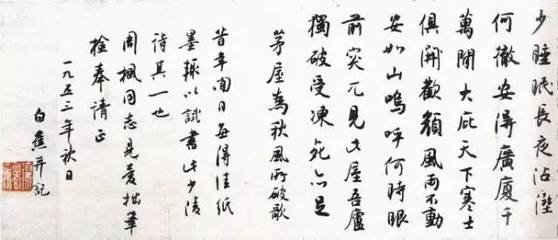 少睡眠長夜沾濕
何徹安得廣廈千
萬間大庇天下寒士
俱開歡顏風雨不動
安如山嗚呼何時眼
前突兀見此屋吾廬
獨破受凍死亦足
茅屋為秋風所破歌
昔年閒日每得佳紙
墨輒以試書此少陵
詩其一也
周楓同志見愛拙筆
檢奉請正
一九五三年秋日
白蕉并記